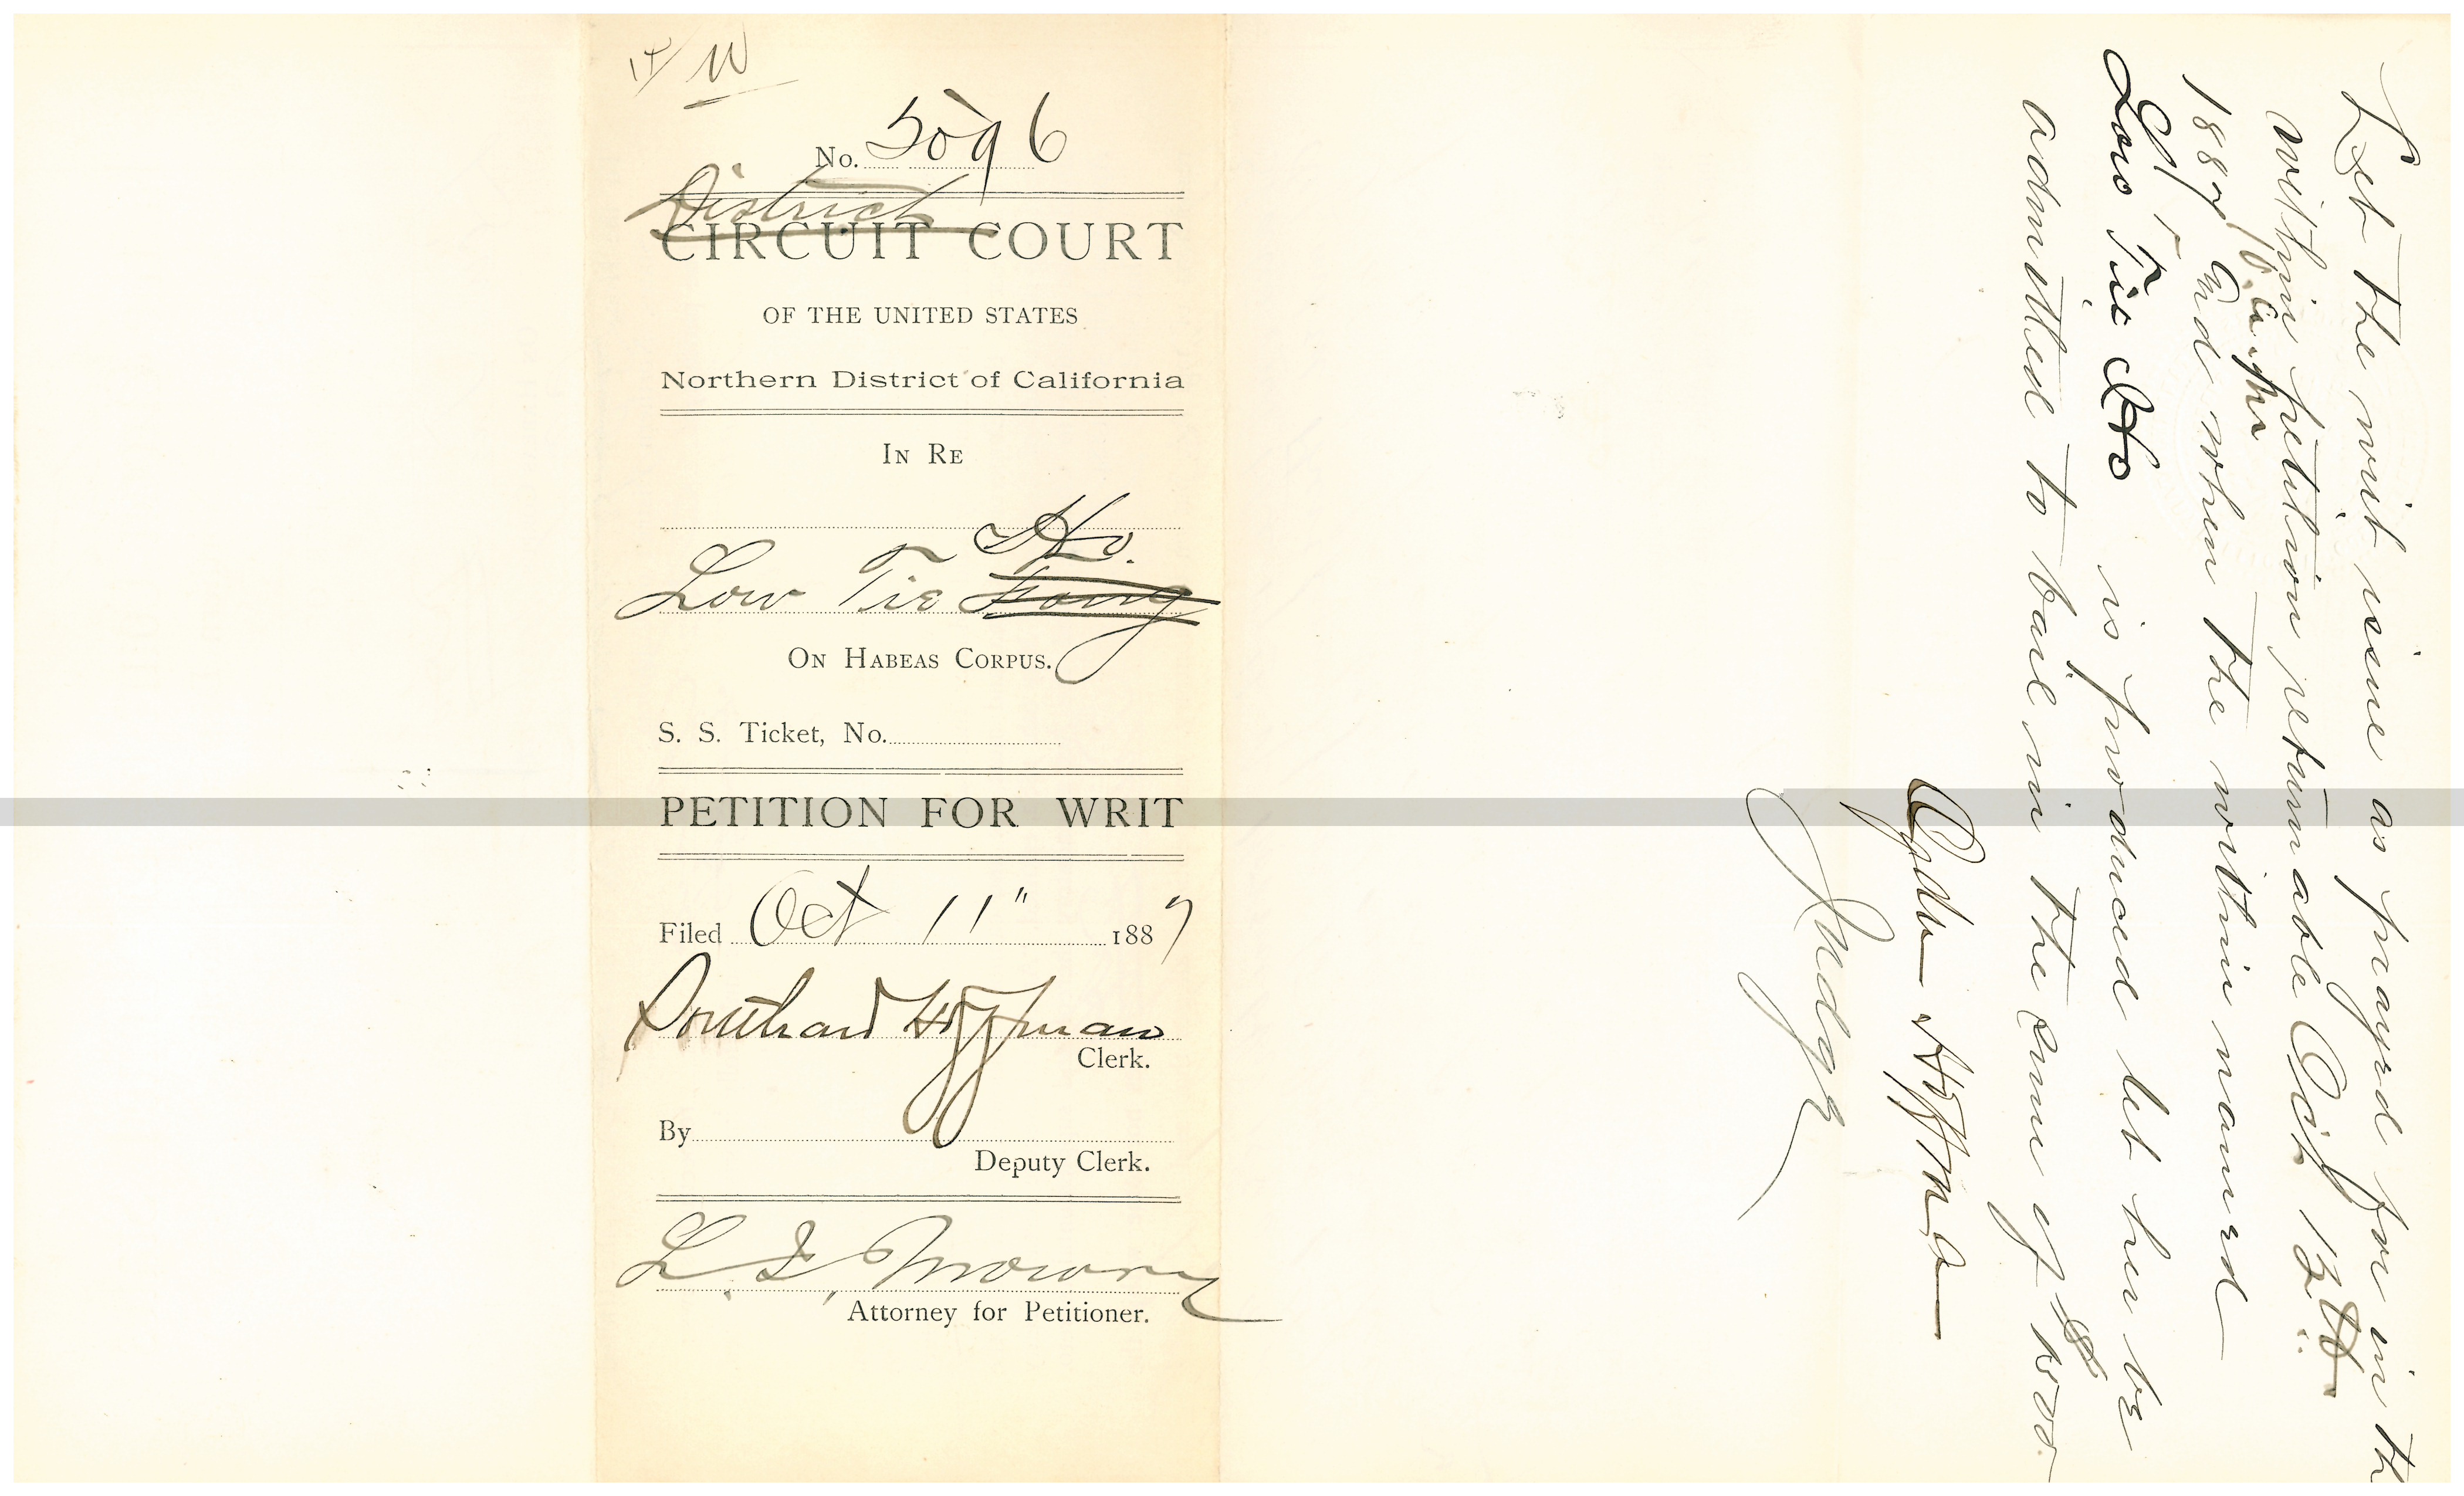 No. 5096
District
CIRCUIT COURT
OF THE UNITED STATES
Northern District of California
IN RE
Ho.
Low Tie Fong
ON HABEAS CORPUS.
S. S. Ticket, No.
PETITION FOR WRIT
Filed Oct 11" 1887
Southard Hoffman
Clerk.
By
Deputy Clerk.
L. I. Mowry
Attorney for Petitioner.
Let the writ issue as prayed for in th
within petition returnable Oct 13th
1887 and when the within named
Low Tie Ho is produced let her be
admitted to bail in the sum of $
Ogden Hoffman
Judge